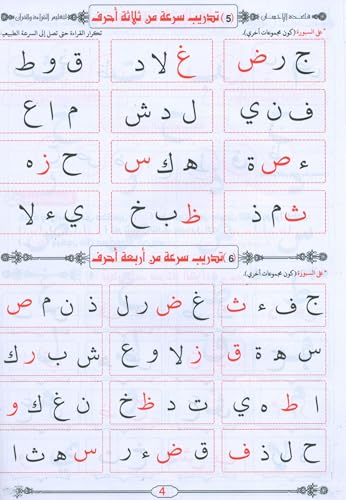 قاعدة الإحسان (5) تدريب سرعة من ثلاثة أحرف لتعليم القراءة والقرآن
* على السبورة (كون مجموعات أخرى). تكرار القراءة حتى تصل إلى السرعة الطبيعية
ج ر ض غ لا د ق و ط
ف ن ي ل د ش م ا ع
ء ص ة ه ك س ح ز ه
ث م ذ ظ ب خ ي ء لا
(6) تدريب سرعة من أربعة أحرف
* على السبورة (كون مجموعات أخرى).
ج ف ء ث غ ض ر ل ذ ن م ص
س ه ة ق ز لا و ع ش ب ر ك
ا ط ه ي ت د ظ خ ن غ ك و
ح ل ذ ف ق ض ء ر س ه ث ا
4